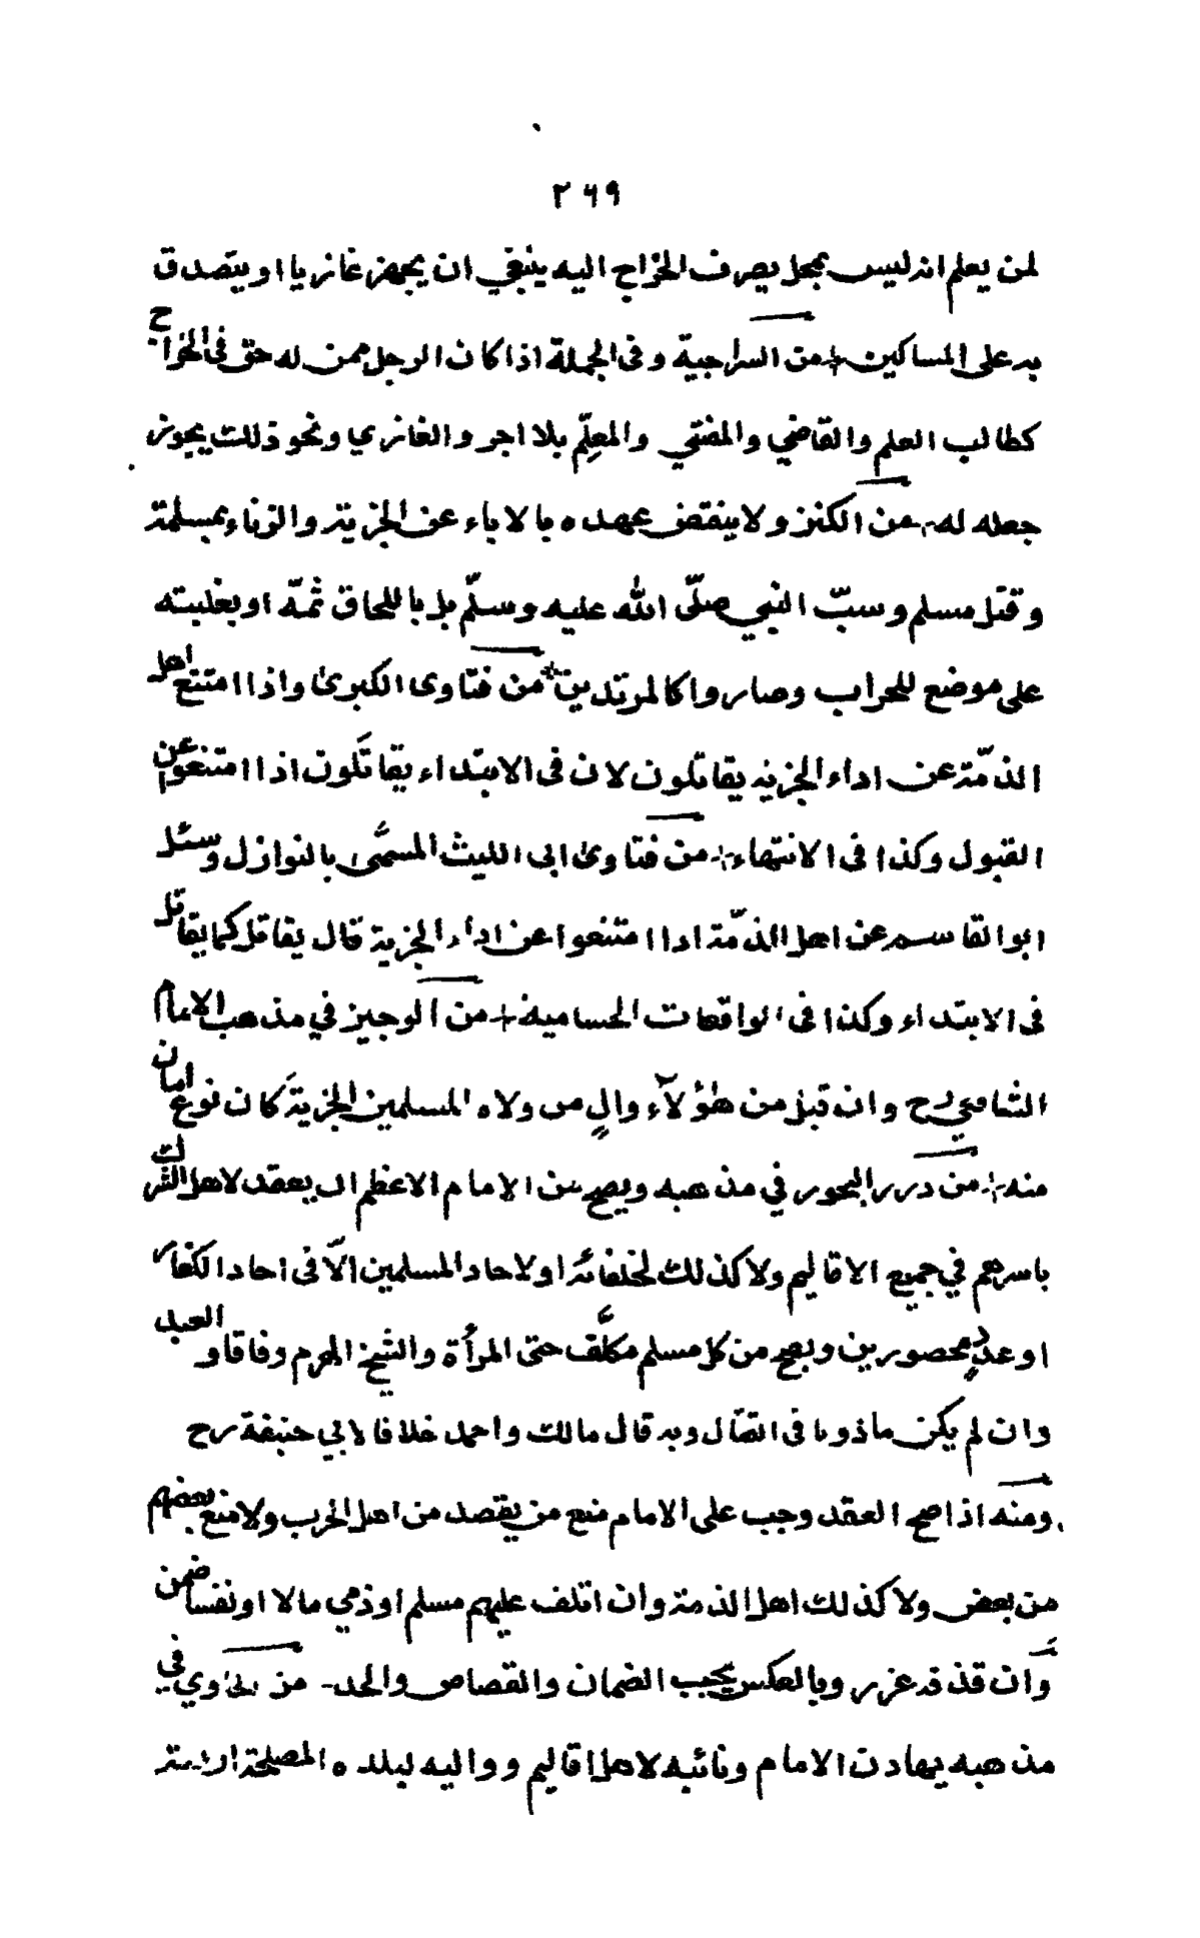 ٢٦٩
لمن يعلم انه ليس بمحل يصرف الخراج اليه ينبغي ان يجهز غازيا او يتصدق
به على المساكين من السراجية وفى الجملة اذا كان الرجل ممن له حق فى الخراج
كطالب العلم والقاضي والمفتي والمعلّم بلا اجر والغازي ونحو ذلك يجوز
جعله له من الكنز ولا ينقض عهده بالاباء عن الجزية والزناء بمسلمة
وقتل مسلم وسبّ النبي صلّى الله عليه وسلّم بل باللحاق ثمّه او بغلبته
على موضع للحراب وصاروا كالمرتدين من فتاوى الكبرى واذا امتنع اهل
الذمّة عن اداء الجزيه يقاتلون لان فى الابتداء يقاتَلون اذا امتنعوا عن
القبول وكذا فى الانتهاء من فتاوى ابى الليث المسمّى بالنوازل وسئل
ابوالقاسم عن اهل الذمّة اذا امتنعوا عن اداء الجزية قال يقاتل كما يقاتل
فى الابتداء وكذا فى الواقعات الحسامية من الوجيز في مذهب الامام
الشافعي رح وان قبل من هؤلآء والٍ من ولاه المسلمين الجزيةَ كان نوع امان
منه من درر البحور في مذهبه ويصح من الامام الاعظم ان يعقد لاهل الشرك
باسرهم في جميع الاقاليم ولا كذلك لخلفائه او لاحاد المسلمين الّا فى احاد الكفار
او عددٍ محصورين ويصح من كل مسلم مكلَّف حتى المرأة والشيخ الهرم وفاقا و العبد
وان لم يكن ماذونا فى القتال وبه قال مالك واحمد خلافا لابي حنيفة رح
ومنه اذا صح العقد وجب على الامام منع من يقصد من اهل الحرب ولا منع بعضهم
من بعض ولا كذلك اهل الذمة وان اتلف عليهم مسلم او ذمي مالا او نفسا ضمن
وان قذفه عزر وبالعكس يجب الضمان والقصاص والحد من الحاوي في
مذهبه يهادن الامام ونائبه لاهل اقاليم وواليه لبلده المصلحة